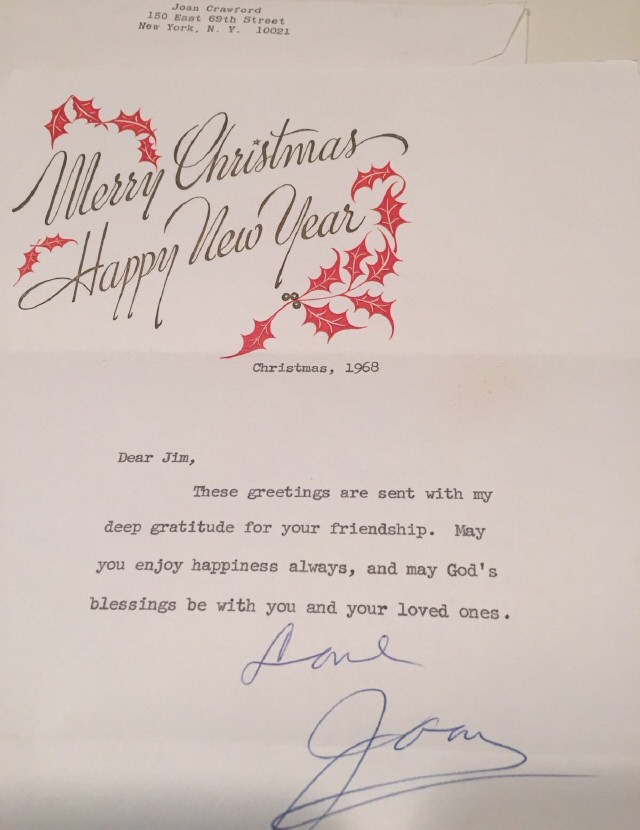 Joan Crawford
150 East 69th Street
New York, N. Y. 10021
Merry Christmas
Happy New Year
Christmas, 1968
Dear Jim,
These greetings are sent with my
deep gratitude for your friendship. May
you enjoy happiness always, and may God's
blessings be with you and your loved ones.
Love
Joan